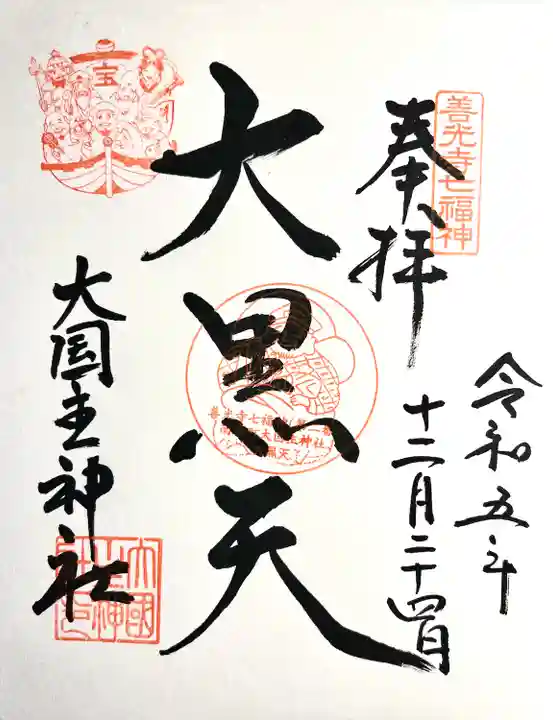 善光寺七福神
奉拝
令和五年
十二月二十四日
大黒天
善光寺七福神
大国主神社
宝
大国主神社